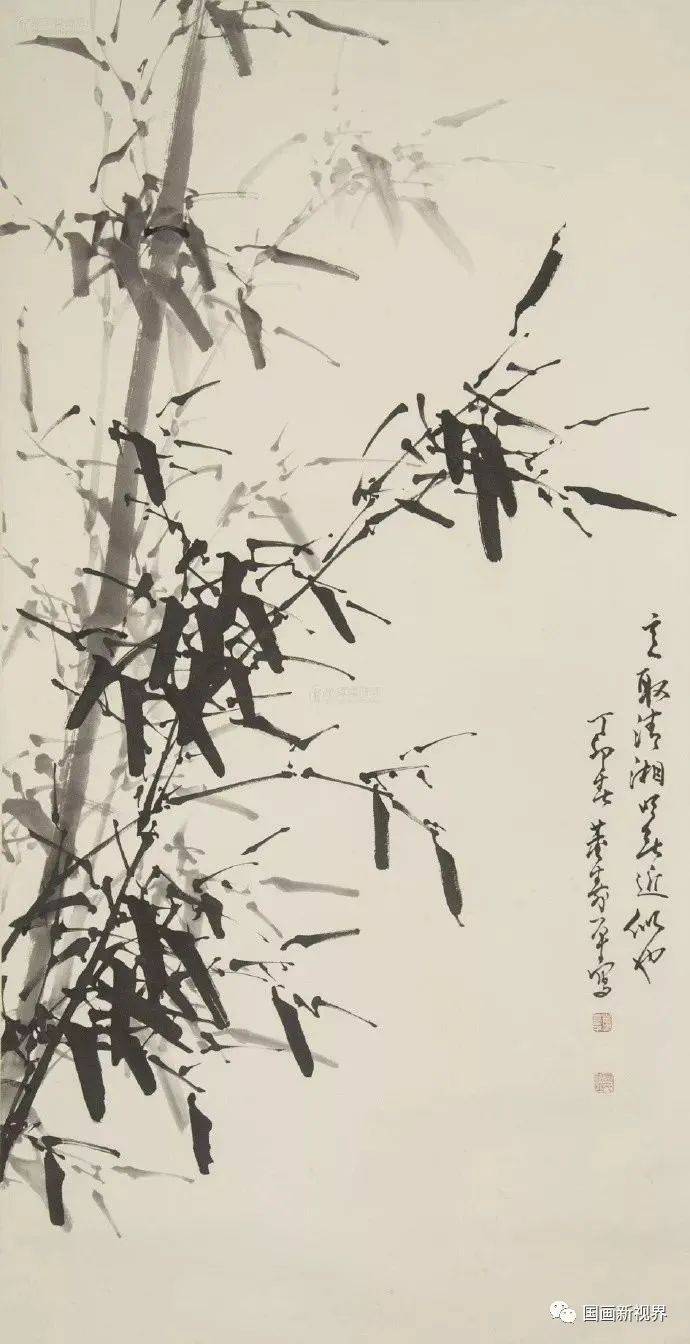 意取清湘近似也
丁卯春 董寿平写
国画新视界